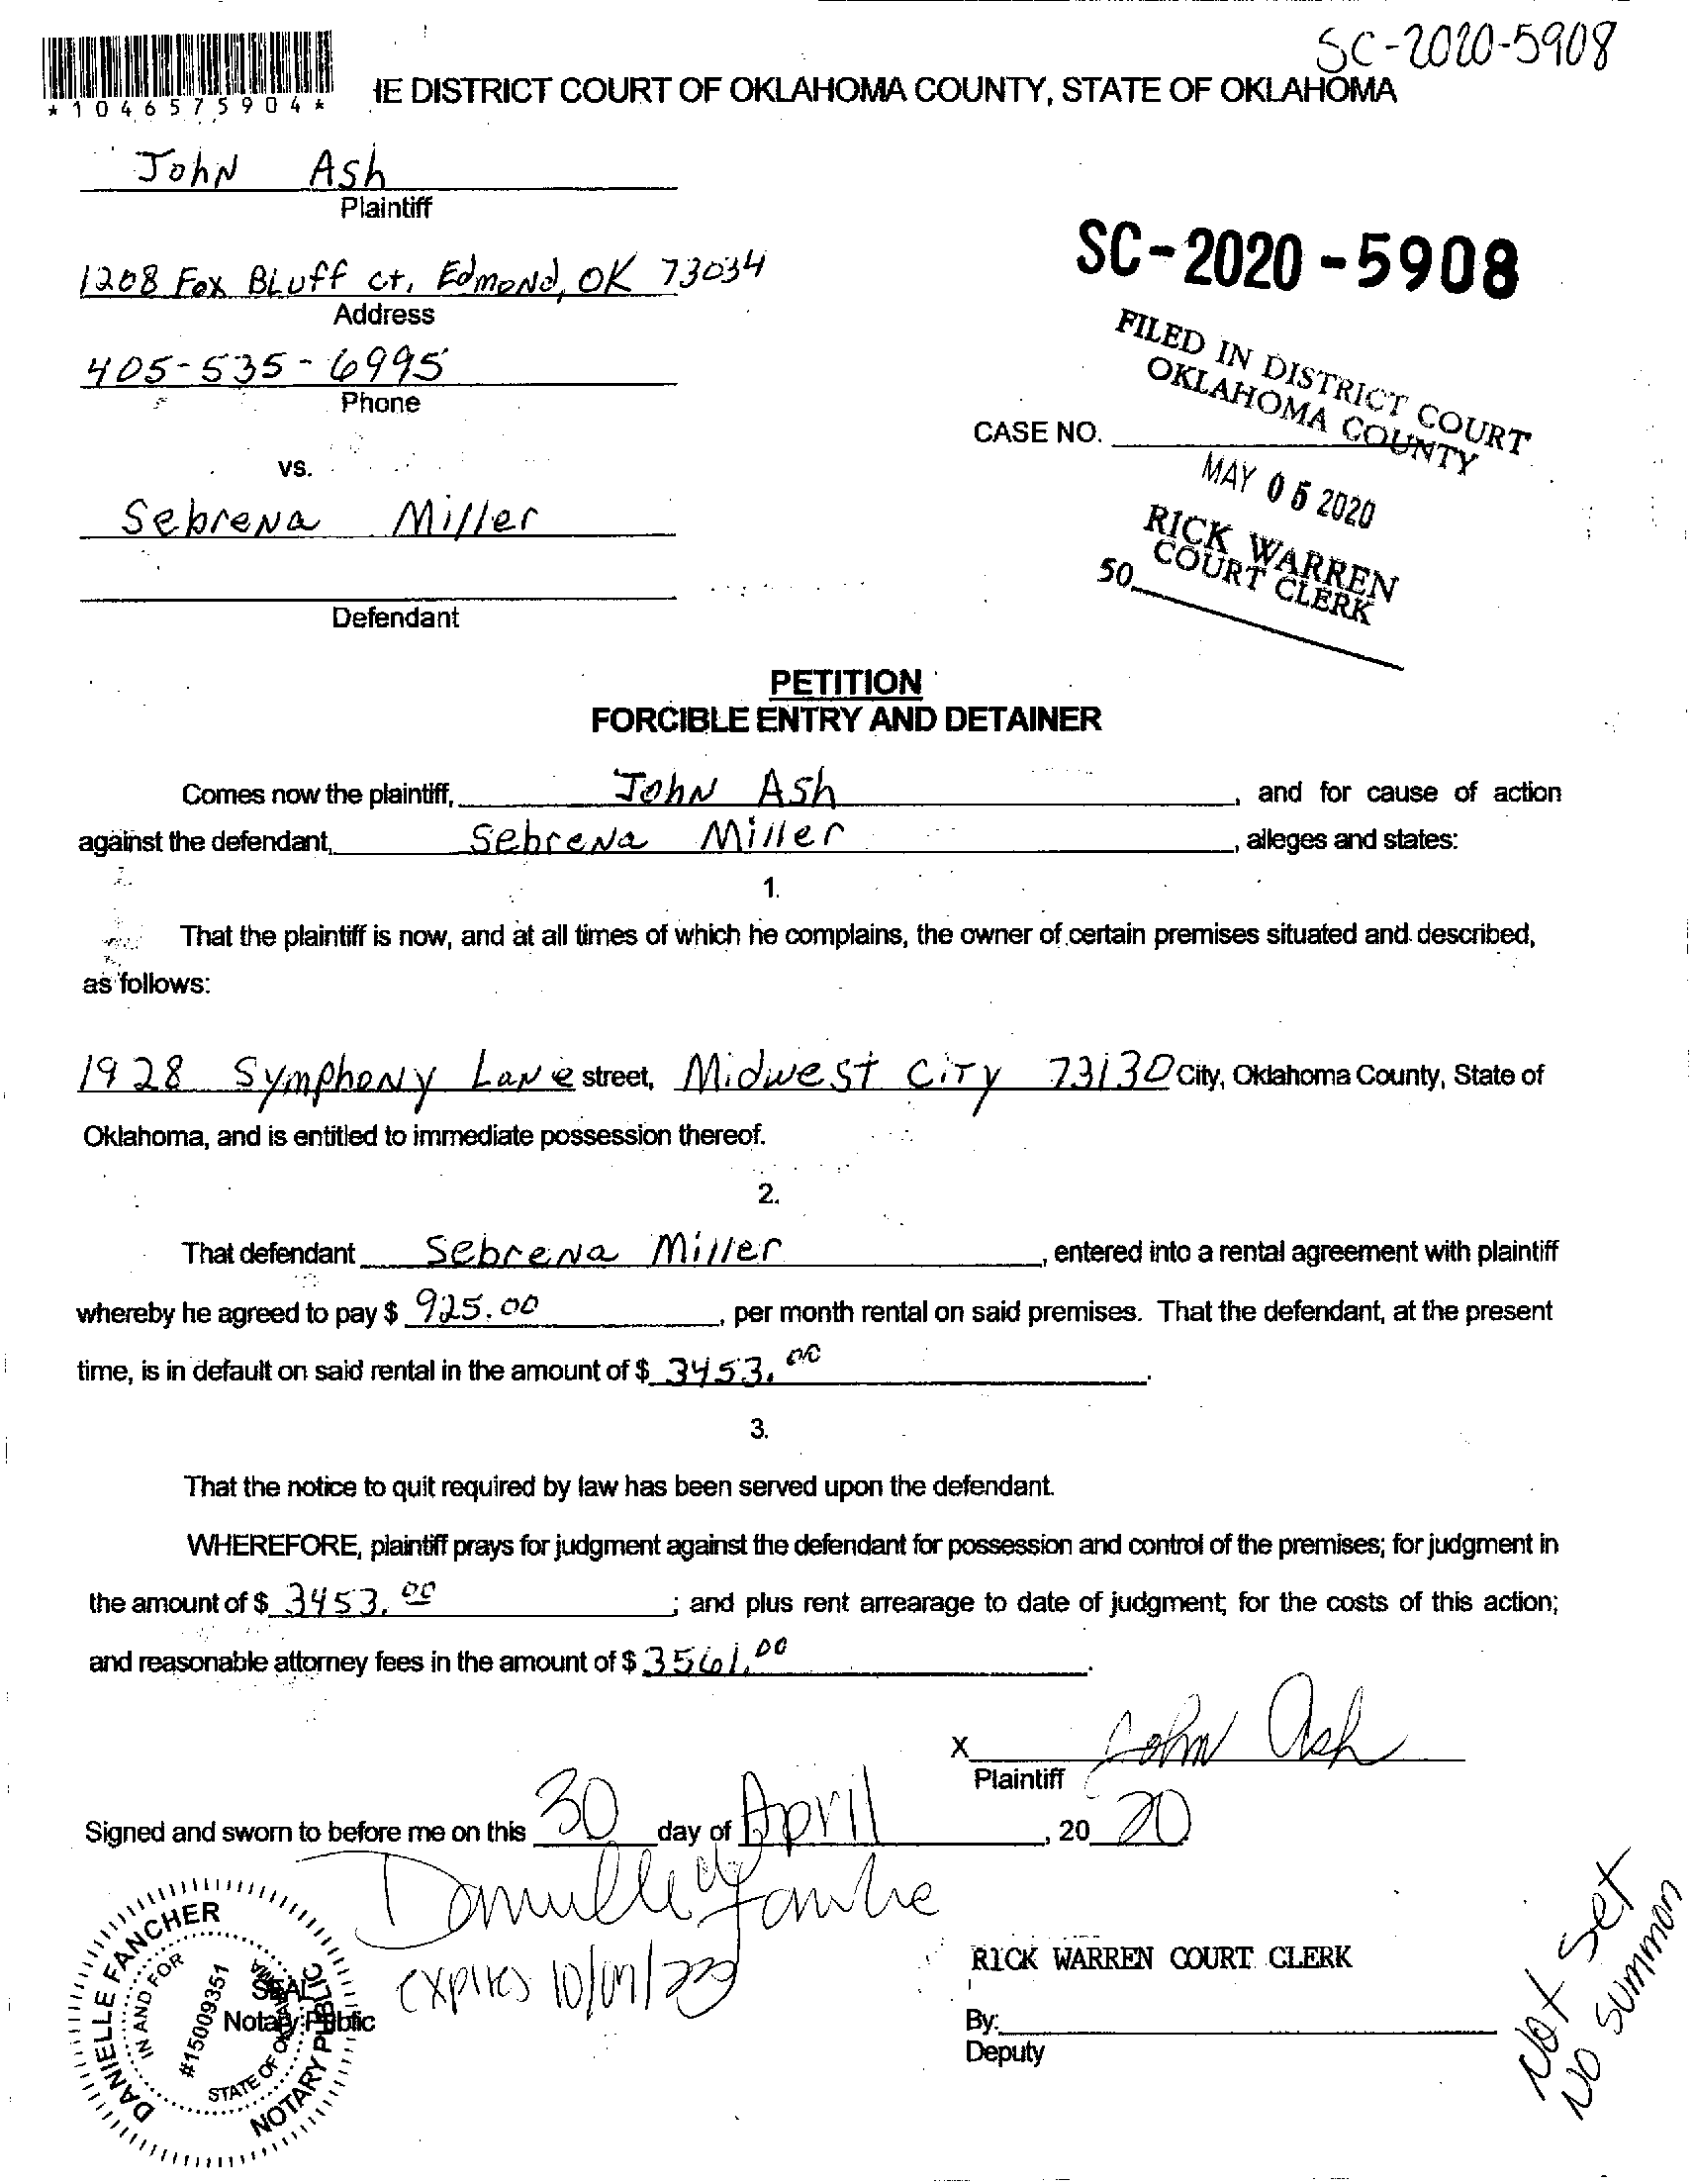 SC-2020-5908
*1046575904*
IE DISTRICT COURT OF OKLAHOMA COUNTY, STATE OF OKLAHOMA
John Ash
Plaintiff
1208 Fox Bluff ct, Edmond, OK 73034
Address
405-535-6995
Phone
SC-2020-5908
FILED IN DISTRICT COURT
OKLAHOMA COUNTY
CASE NO.
MAY 05 2020
RICK WARREN
COURT CLERK
50
vs.
Sebrena Miller
Defendant
PETITION
FORCIBLE ENTRY AND DETAINER
Comes now the plaintiff, John Ash, and for cause of action
against the defendant, Sebrena Miller, alleges and states:
1.
That the plaintiff is now, and at all times of which he complains, the owner of certain premises situated and described,
as follows:
1928 Symphony Lane street, Midwest City 73130 City, Oklahoma County, State of
Oklahoma, and is entitled to immediate possession thereof.
2.
That defendant Sebrena Miller, entered into a rental agreement with plaintiff
whereby he agreed to pay $ 925.00, per month rental on said premises. That the defendant, at the present
time, is in default on said rental in the amount of $ 3453.00.
3.
That the notice to quit required by law has been served upon the defendant.
WHEREFORE, plaintiff prays for judgment against the defendant for possession and control of the premises; for judgment in
the amount of $ 3453.00; and plus rent arrearage to date of judgment; for the costs of this action;
and reasonable attorney fees in the amount of $ 3561.00.
X John Ash
Plaintiff
Signed and sworn to before me on this 30 day of April, 20 20
DANIELLE FANCHER
IN AND FOR
#15009351
STATE OF OKLAHOMA
NOTARY PUBLIC
SEAL
Notary Public
expires
RICK WARREN COURT CLERK
By:
Deputy
Not Set
No Summon